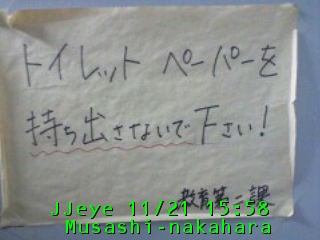 トイレット ペーパーを
持ち出さないで下さい!
教育第二課
JJeye 11/21 15:58
Musashi-nakahara